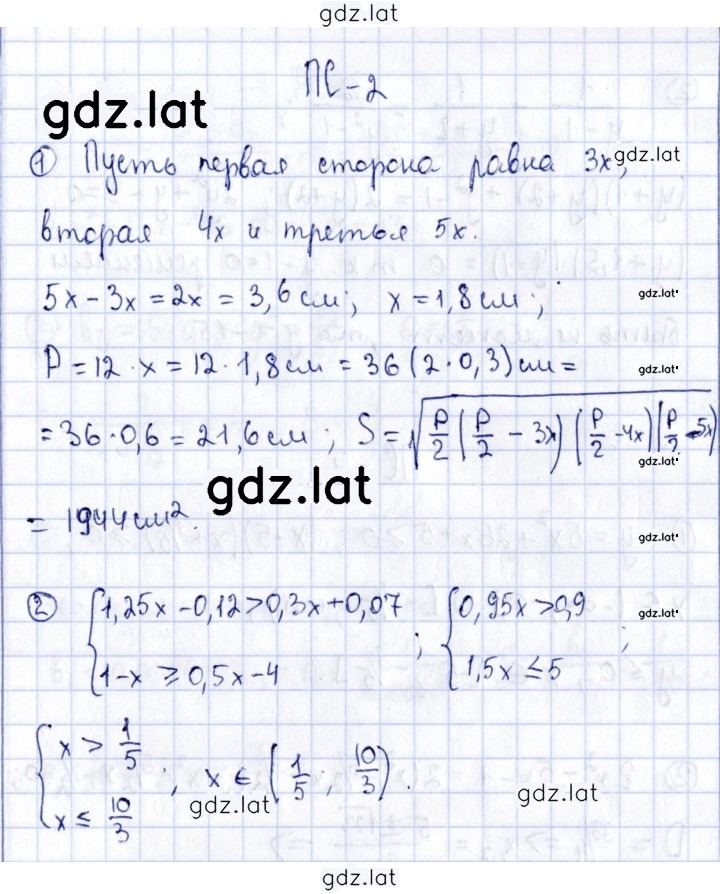 gdz.lat
ПС-2
gdz.lat
① Пусть первая сторона равна 3x,
gdz.lat
вторая 4x и третья 5x.
5x - 3x = 2x = 3,6 см; x = 1,8 см;
gdz.lat
P = 12 · x = 12 · 1,8 см = 36 (2 · 0,3) см =
gdz.lat
= 36 · 0,6 = 21,6 см; S = √(P/2 (P/2 - 3x) (P/2 - 4x) (P/2 - 5x))
gdz.lat
gdz.lat
= 1944 см².
gdz.lat
② { 1,25x - 0,12 > 0,3x + 0,07 ; { 0,95x > 0,9 ;
gdz.lat
1 - x ≥ 0,5x - 4 1,5x ≤ 5
{ x > 1/5 ; x ∈ (1/5 ; 10/3).
x ≤ 10/3
gdz.lat
gdz.lat
gdz.lat